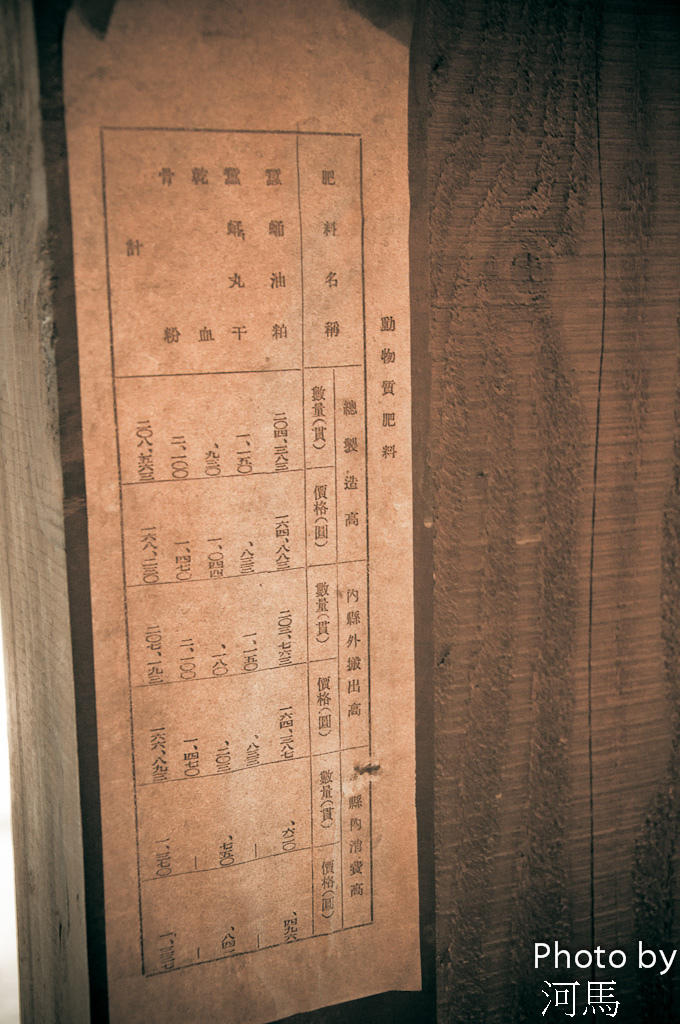 動物質肥料
肥料名稱 總製造高 內縣外搬出高 縣內消費高
數量(貫) 價格(圓) 數量(貫) 價格(圓) 數量(貫) 價格(圓)
蠶蛹油粕 二〇四、三八三 一六四、八八三 二〇三、七六三 一六四、三八七 、六二〇 、四九六
蠶蛹丸干 一、一五〇 、八三三 一、一五〇 、八三三 — —
乾血 、九三〇 一、〇四四 、一八〇 、二〇三 、七五〇 、八四一
骨粉 二、一〇〇 一、四七〇 二、一〇〇 一、四七〇 — —
計 二〇八、五六三 一六八、二三〇 二〇七、一九三 一六六、八九三 一、三七〇 一、三三七
Photo by
河馬